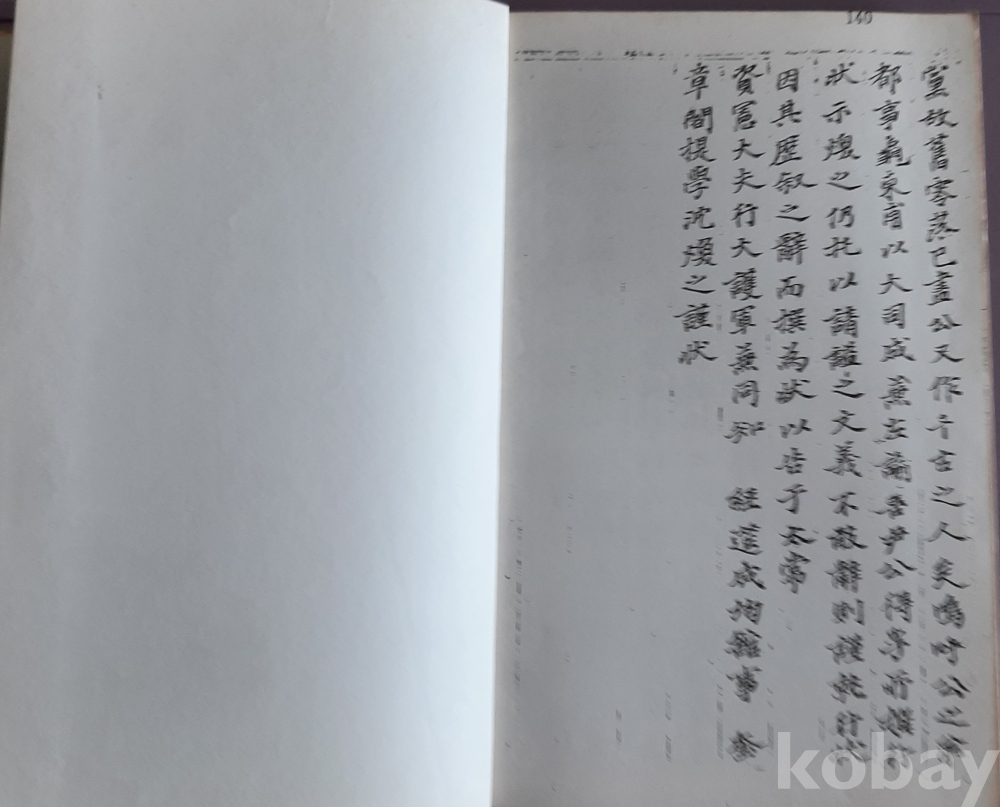 140
黨故舊零落已盡公又作千古之人矣嗚呼公之
都事 東 以大司成兼 尹公得孚所撰
狀示煥之仍托以請謚之文義不敢辭則謹就行狀
因其歷叙之辭而撰爲狀以告于太常
資憲大夫行大護軍兼同知 經筵成均館事 奎
章閣提學沈煥之謹狀
kobay